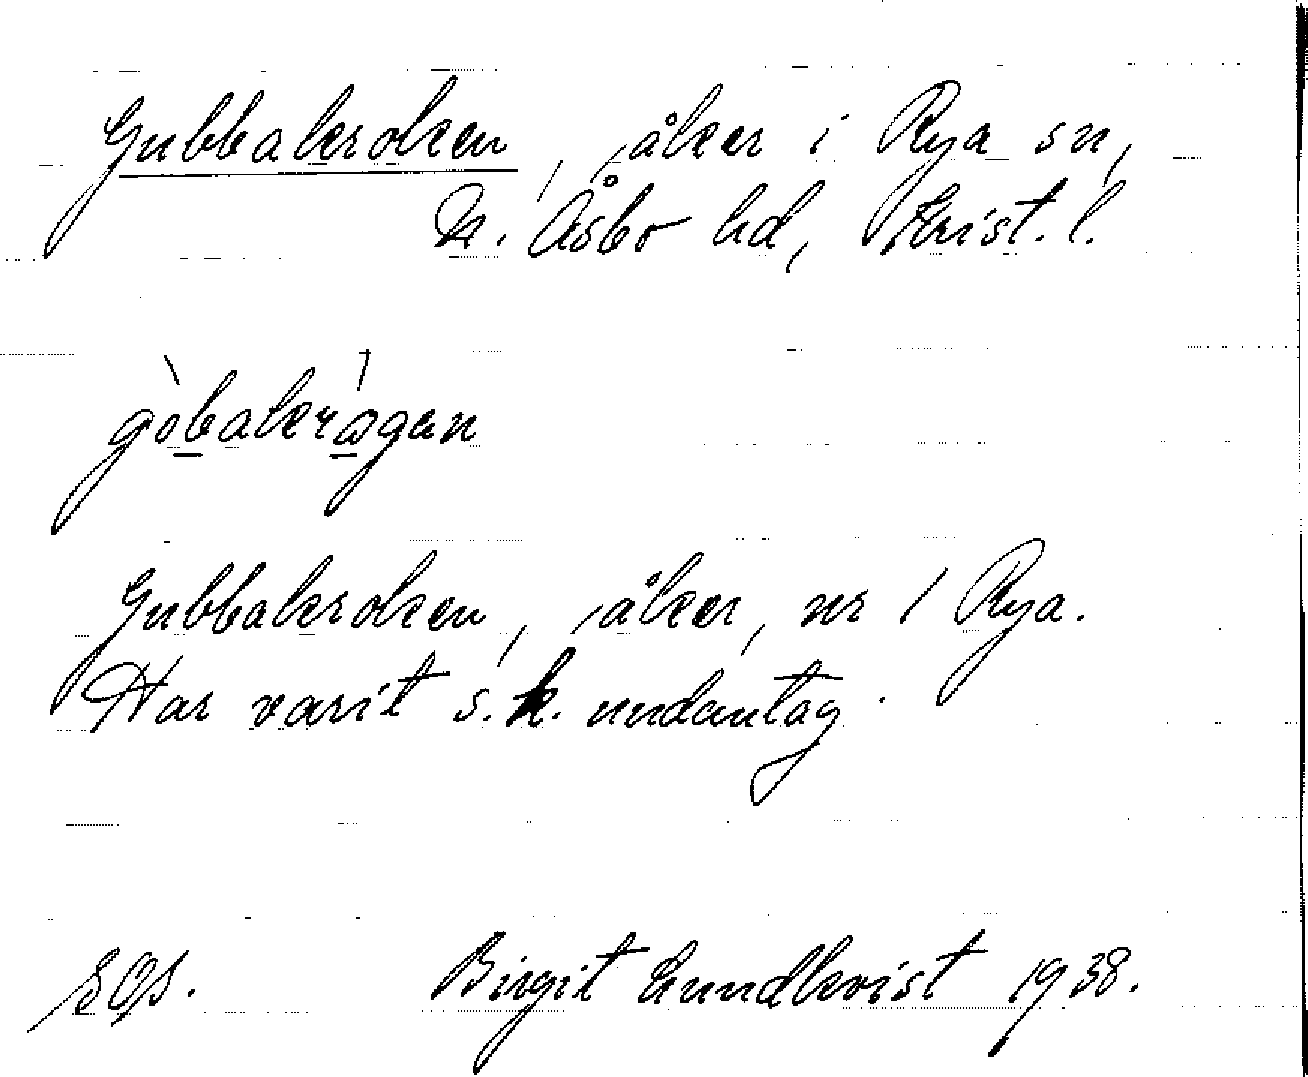 Gubbakroken, åker i Rya sn,
N. Åsbo hd, Krist. l.
gòbakrågen
Gubbakroken, åker, nr 1 Rya.
Har varit s.k. undantag.
Birgit Lundkvist 1938.